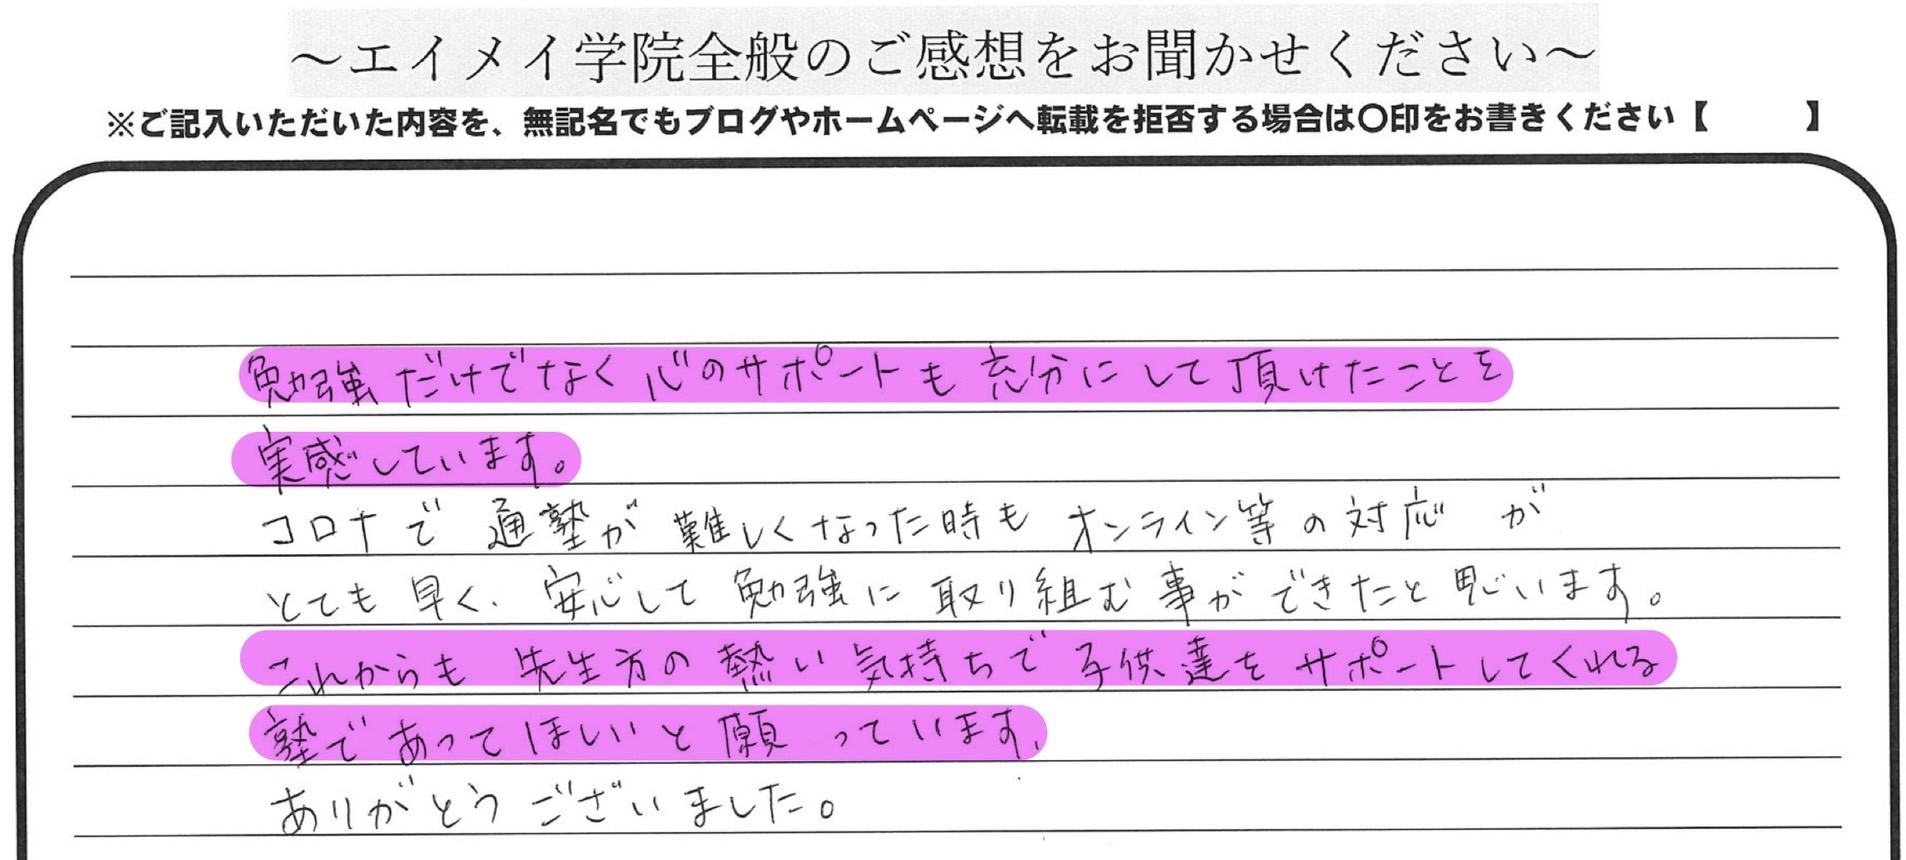 ～エイメイ学院全般のご感想をお聞かせください～
※ご記入いただいた内容を、無記名でもブログやホームページへ転載を拒否する場合は〇印をお書きください【　　　】
勉強だけでなく心のサポートも充分にして頂けたことを
実感しています。
コロナで通塾が難しくなった時もオンライン等の対応が
とても早く、安心して勉強に取り組む事ができたと思います。
これからも先生方の熱い気持ちで子供達をサポートしてくれる
塾であってほしいと願っています。
ありがとうございました。